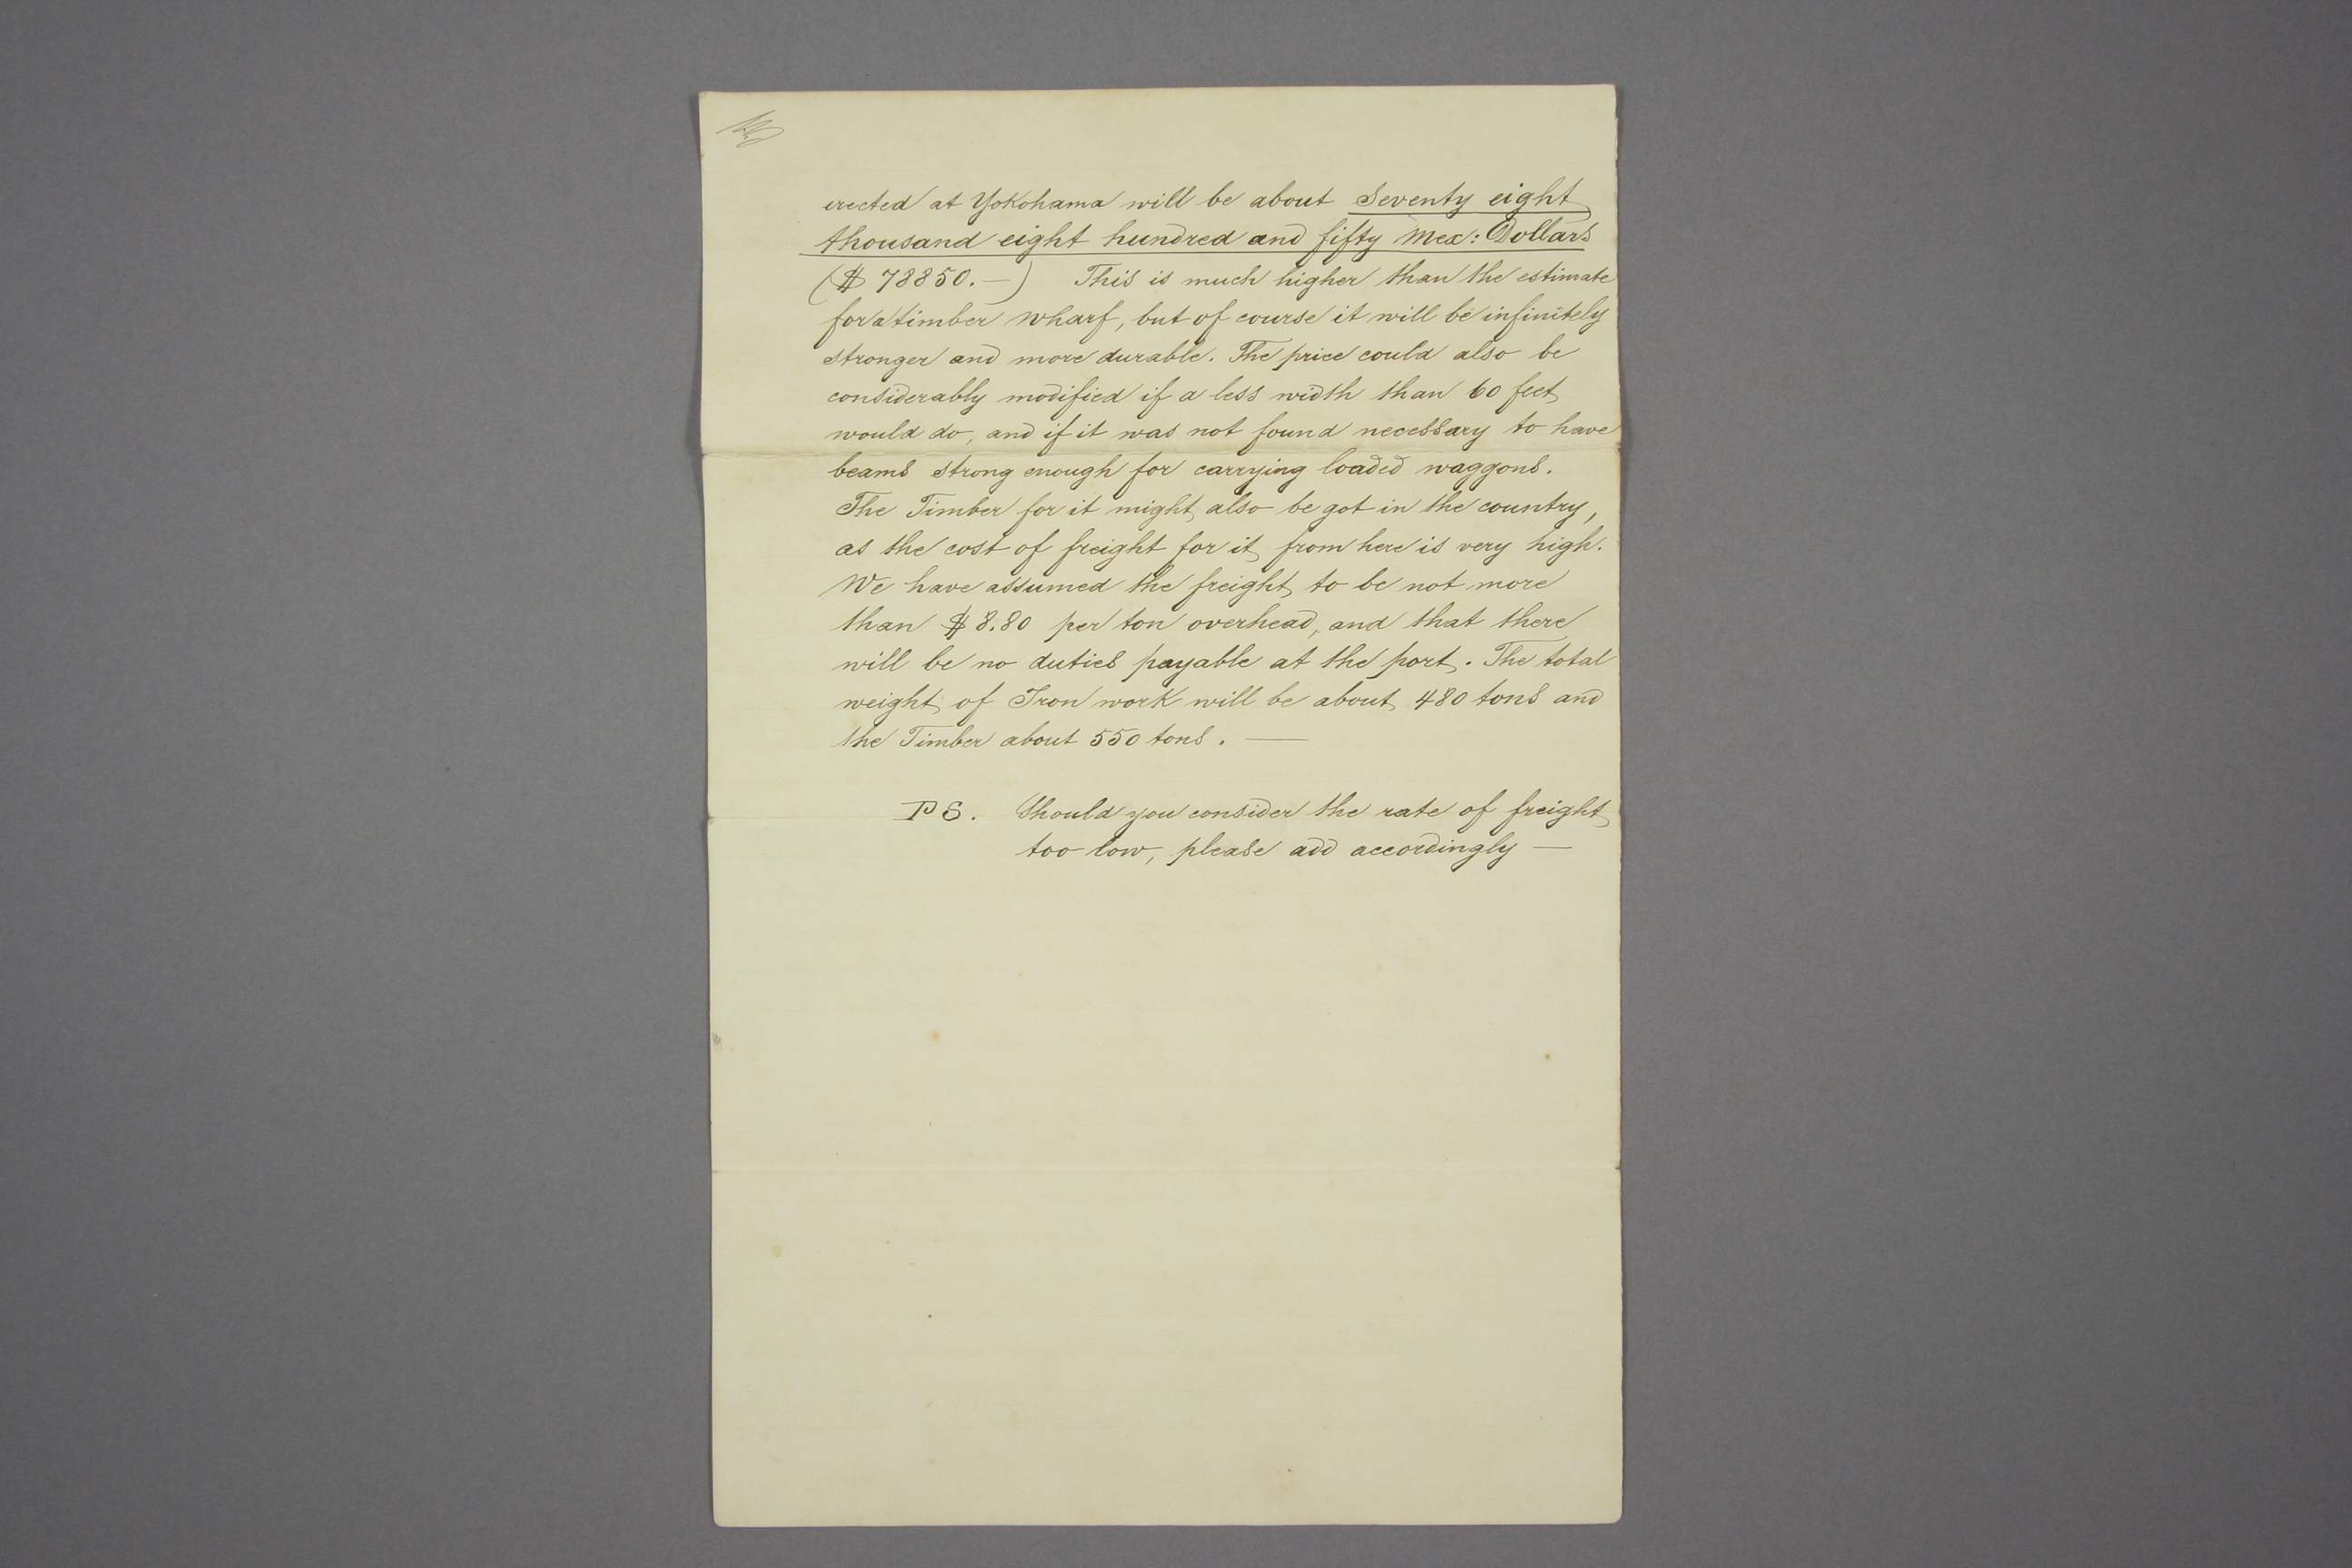 erected at Yokohama will be about Seventy eight
thousand eight hundred and fifty Mex: Dollars
($ 78850.—) This is much higher than the estimate
for a timber wharf, but of course it will be infinitely
stronger and more durable. The price could also be
considerably modified if a less width than 60 feet
would do, and if it was not found necessary to have
beams strong enough for carrying loaded waggons.
The Timber for it might also be got in the country,
as the cost of freight for it from here is very high.
We have assumed the freight to be not more
than $ 8.80 per ton overhead, and that there
will be no duties payable at the port. The total
weight of Iron work will be about 480 tons and
the Timber about 550 tons. —
PS. Should you consider the rate of freight
too low, please add accordingly —